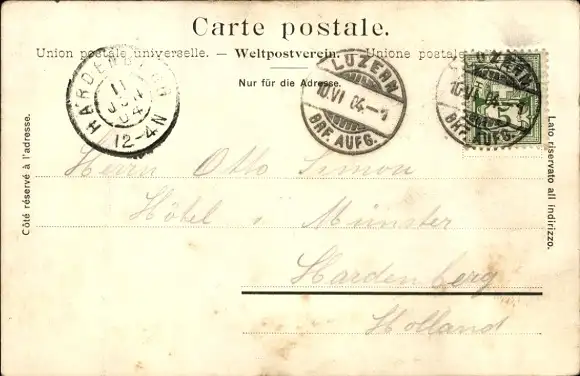 Carte postale.
Union postale universelle. — Weltpostverein. — Unione postale
Nur für die Adresse.
HARDENBERG
11
JUN
04
12-4N
LUZERN
10.VI 04.—1
BRF. AUFG.
LUZERN
10.VI 04.—1
BRF. AUFG.
5
Côté réservé à l'adresse.
Lato riservato all indirizzo.
Herrn Otto Simon
Hôtel Münster
Hardenberg
Holland